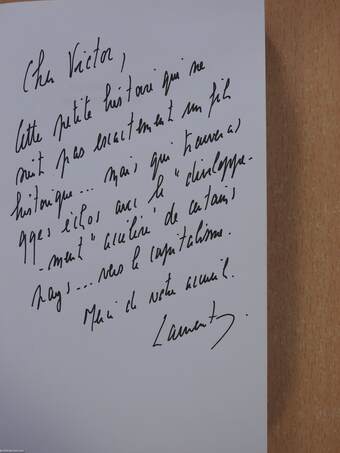 Cher Victor,
Cette petite histoire qui ne
suit pas exactement un fil
historique... mais qui trouveras
qques échos avec le "développe-
-ment" accéléré de certains
pays... vers le capitalisme.
Merci de votre accueil.
Laurent